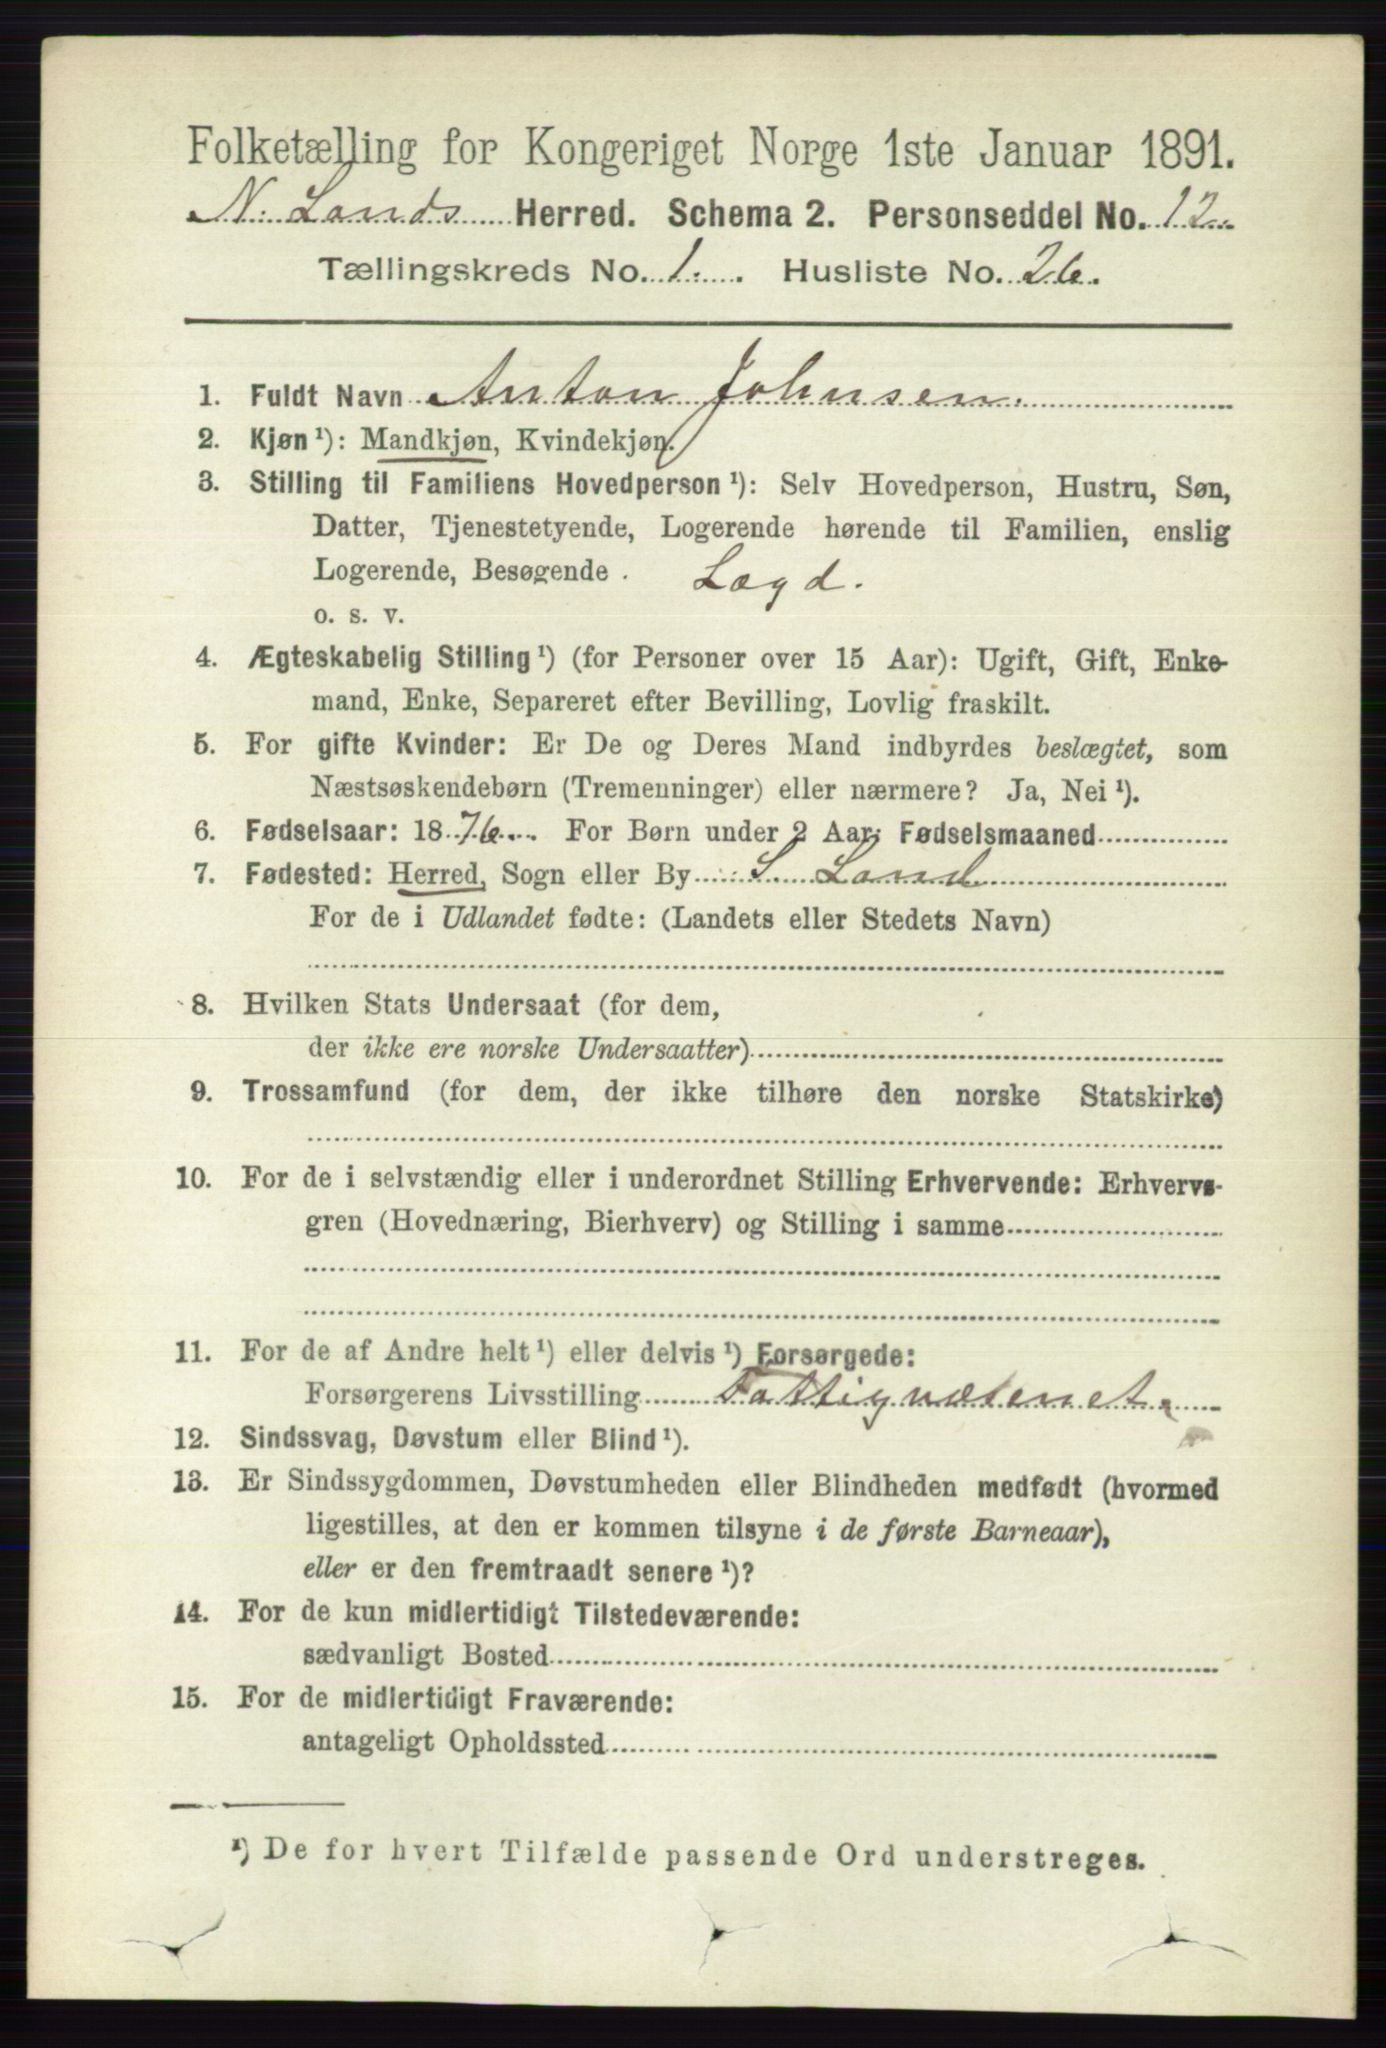 Folketælling for Kongeriget Norge 1ste Januar 1891.
N. Lands Herred. Schema 2. Personseddel No. 12.
Tællingskreds No. 1. Husliste No. 26.
1. Fuldt Navn Anton Johnsen.
2. Kjøn¹): Mandkjøn, Kvindekjøn.
3. Stilling til Familiens Hovedperson¹): Selv Hovedperson, Hustru, Søn,
Datter, Tjenestetyende, Logerende hørende til Familien, enslig
Logerende, Besøgende. Lægd.
o. s. v.
4. Ægteskabelig Stilling¹) (for Personer over 15 Aar): Ugift, Gift, Enke-
mand, Enke, Separeret efter Bevilling, Lovlig fraskilt.
5. For gifte Kvinder: Er De og Deres Mand indbyrdes beslægtet, som
Næstsøskendebørn (Tremenninger) eller nærmere? Ja, Nei¹).
6. Fødselsaar: 1876. For Børn under 2 Aar: Fødselsmaaned
7. Fødested: Herred, Sogn eller By S. Land
For de i Udlandet fødte: (Landets eller Stedets Navn)
8. Hvilken Stats Undersaat (for dem,
der ikke ere norske Undersaatter)
9. Trossamfund (for dem, der ikke tilhøre den norske Statskirke)
10. For de i selvstændig eller i underordnet Stilling Erhvervende: Erhvervs-
gren (Hovednæring, Bierhverv) og Stilling i samme
11. For de af Andre helt¹) eller delvis¹) Forsørgede:
Forsørgerens Livsstilling Fattigvæsenet.
12. Sindssvag, Døvstum eller Blind¹).
13. Er Sindssygdommen, Døvstumheden eller Blindheden medfødt (hvormed
ligestilles, at den er kommen tilsyne i de første Barneaar),
eller er den fremtraadt senere¹)?
14. For de kun midlertidigt Tilstedeværende:
sædvanligt Bosted
15. For de midlertidigt Fraværende:
antageligt Opholdssted
¹) De for hvert Tilfælde passende Ord understreges.